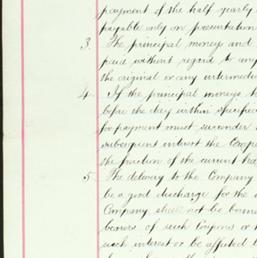 payment of the half yearly
payable only on presentation
3. The principal money and
paid without regard to any
the original or any intermedi
4. If the principal moneys
before the day within specified
for payment must surrender
subsequent interest the Comp
the fraction of the current ha
5. The delivery to the Company
be a good discharge for the
Company shall not be boun
bearers of such Coupons or
such interest or be affected